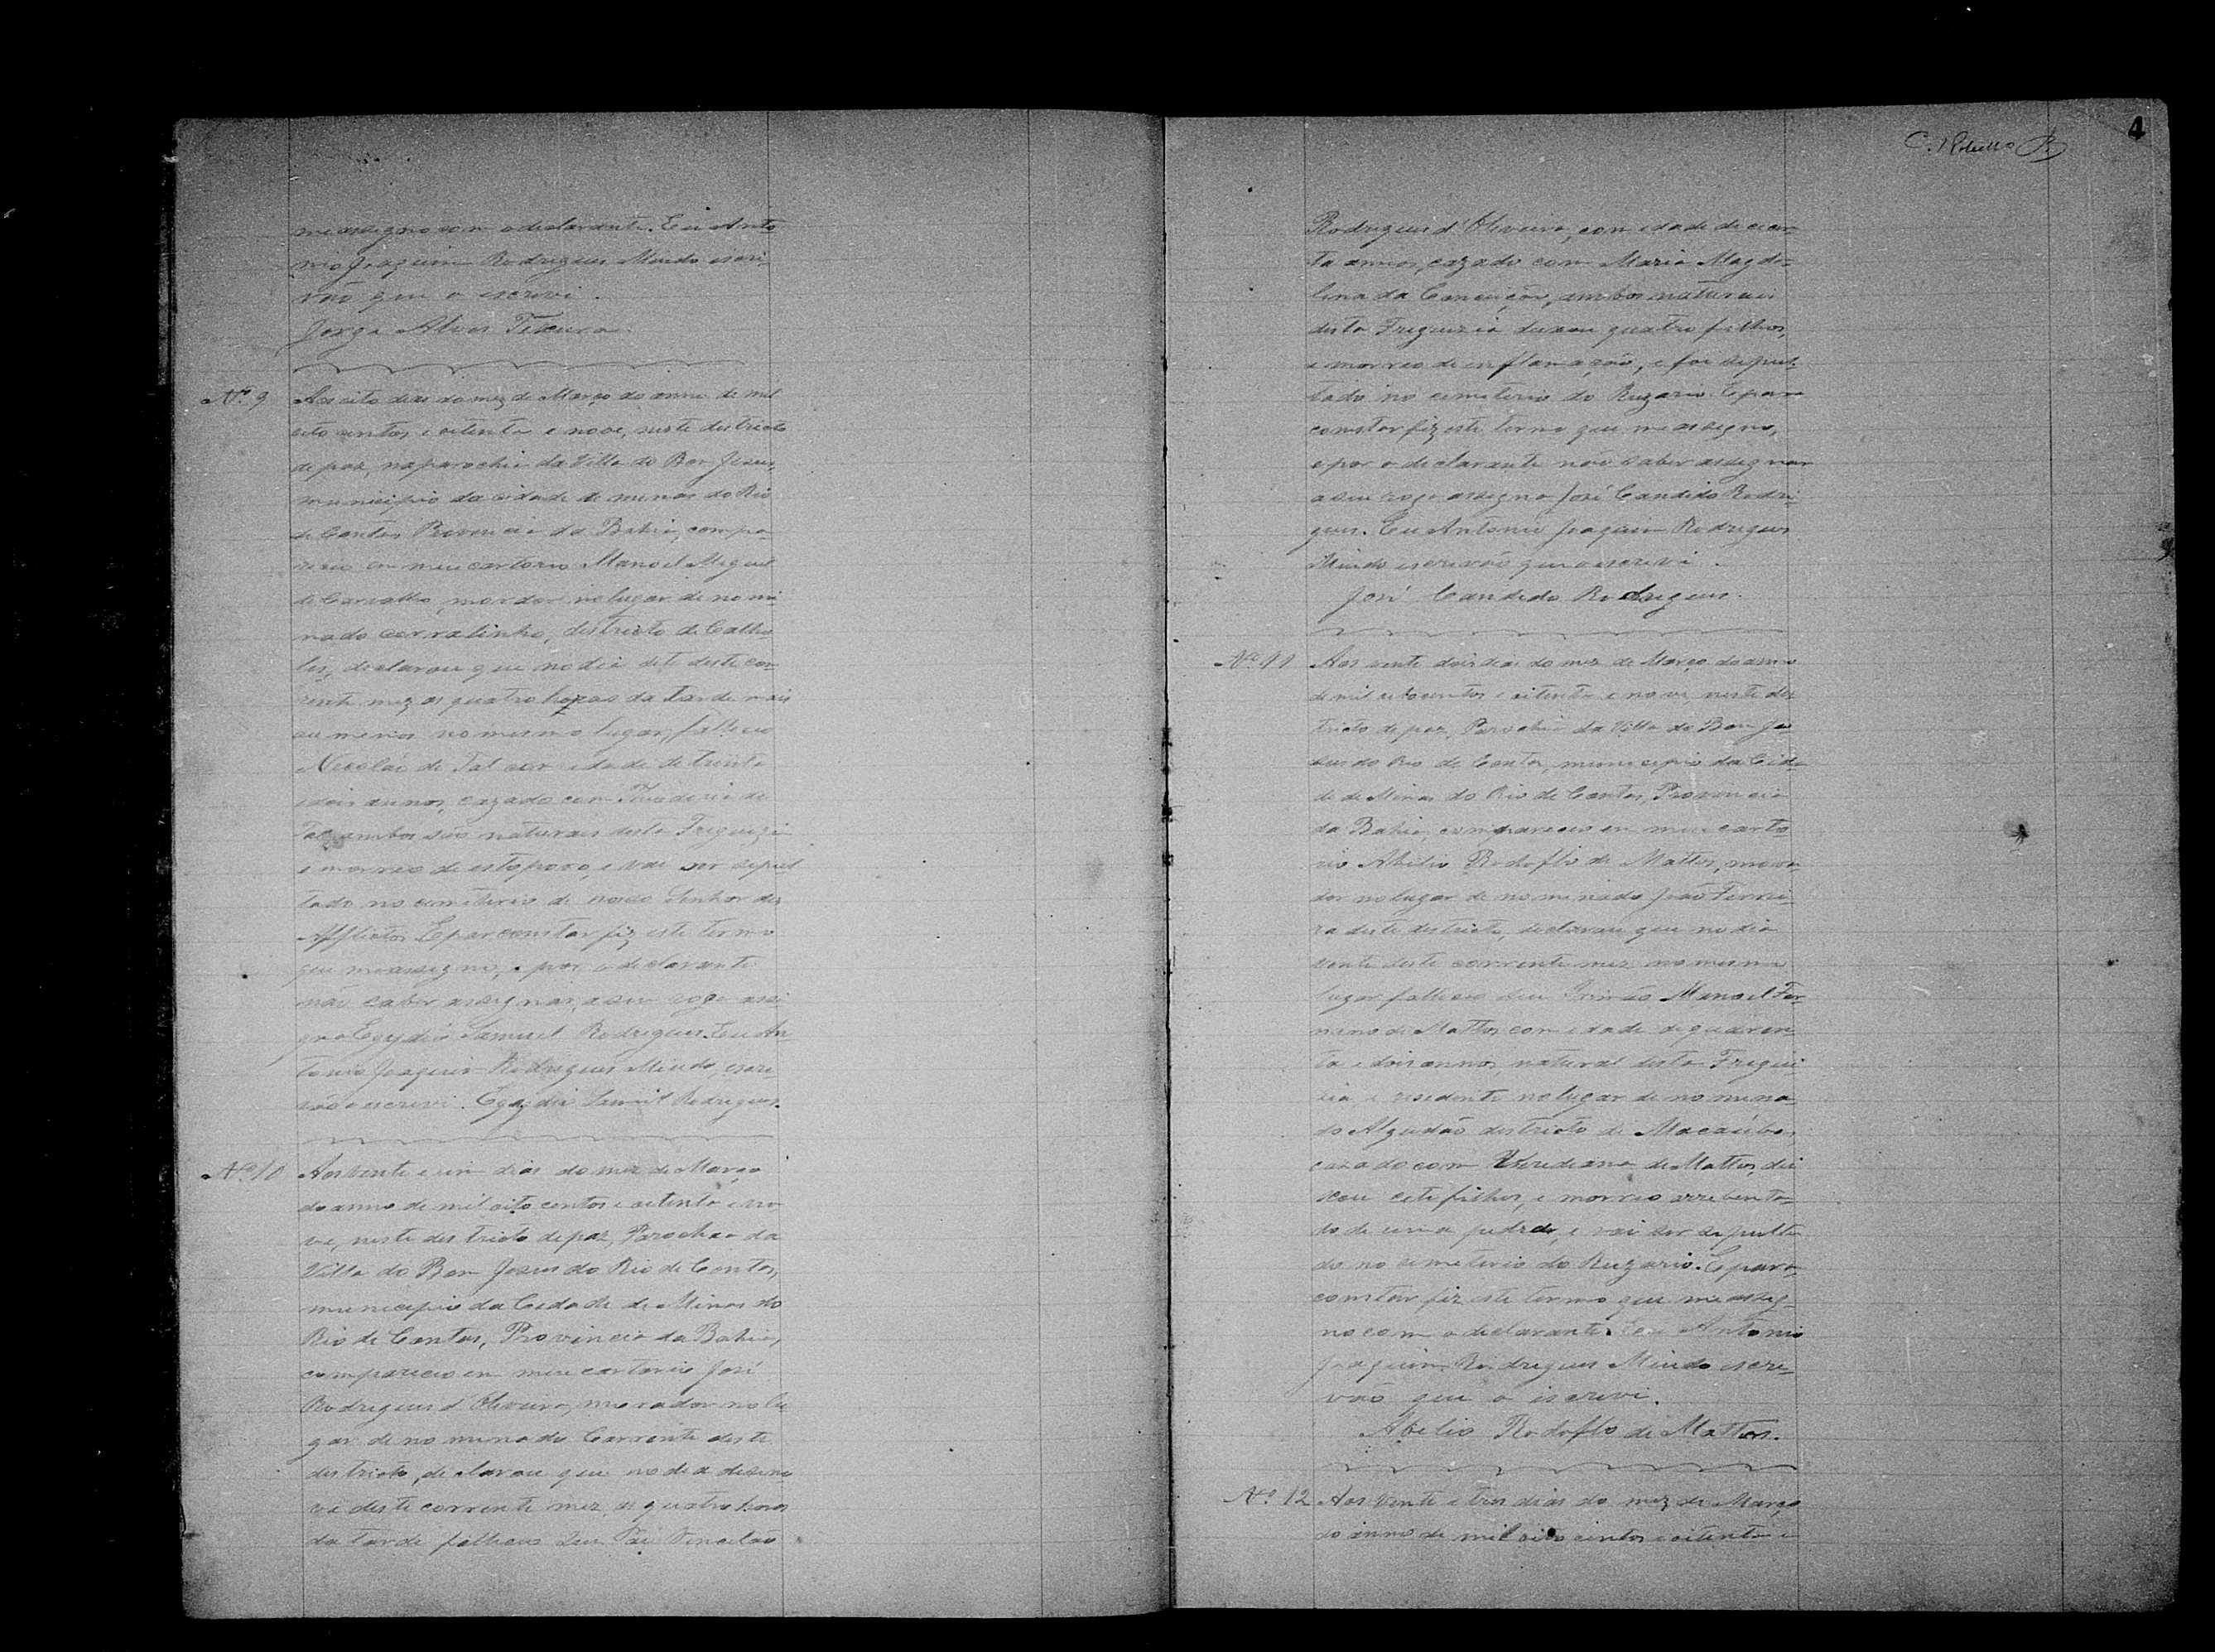 me assigno com o declarante. Eu Anto
nio Joaquim Rodrigues Miudo escri-
vão que o escrevi.
Jorge Alves Teixeira
Nº 9 Aos oito dias do mez de Março do anno de mil
oito centos e oitenta e nove, neste districto
de paz, na parochia da Villa do Bom Jesus,
municipio da cidade de minas do Rio
de Contas Provincia da Bahia, compa-
receo em meu cartorio Manoel Miguel
de Carvalho, morador no lugar denomi-
nado corralinho, districto de Catho
les, declarou que no dia sete deste cor-
rente mez as quatro horas da tarde mais
ou menos no mesmo lugar, falleceo
Nicolao de Tal com idade de trinta
e dois annos, cazado com Theodoria de
Tal ambos são naturais desta Freguizia
e morreo de estoporo, e vai ser sepul
tado no cemiterio de nosso Senhor dos
Afflictos. E par constar fiz este termo
que me assigno, e por o declarante
não saber assignar, a seu rogo assi
gno Egydio Samuel Rodrigues. Eu An
tonio Joaquim Rodrigues Miudo, escri-
vão o escrevi. Egydio Samuel Rodrigues.
Nº 10 Aos vente e um dias do mez de Março
do anno de mil oito centos e oitenta e no
ve, neste districto de paz, Parochia da
Villa do Bom Jesus do Rio de Contas,
municipio da Cidade de Minas do
Rio de Contas, Provincia da Bahia,
compareceo em meu cartorio José
Rodrigues d'Oliveira, morador no lu
gar denominado Corrente deste
districto, declarou que no dia deseno
ve deste corrente mez, as quatro horas
da tarde falleceu seu Pai Venclao
4
Rodrigues d'Oliveira, com idade de
ta annos, cazado com Maria Magda-
lena da Conceição, ambos naturais
desta Freguizia deixou quatro filhos,
e morreo de enflamação, e foi sepul-
tado no cemiterio do Ruzario. E para
constar fiz este termo que me assigno,
e por o declarante não saber assignar
a seu rogo assigno José Candido Rodri
gues. Eu Antonio Joaquim Rodrigues
Miudo escrivão que o escrevi.
José Candido Rodrigues.
Nº 11 Aos vente dois dias do mez de Março do anno
de mil oito centos e oitenta e nove neste dis
tricto de paz, Parochia da Villa do Bom Je
sus do Rio de Contas, municipio da Cida
de de Minas do Rio de Contas, Provincia
da Bahia, compareceo em meu carto
rio Abilio Rodoflo de Mattos, mora-
dor no lugar denominado João Ferrei-
ra deste districto, declarou que no dia
vente deste corrente mez no mesmo
lugar falleceo seu Irmão Manoel Fer-
mino de Mattos com idade de quaren-
ta e dois annos, natural desta Fregui
zia, e residente no lugar denomina-
do Algudão districto de Macaúbas,
cazado com Verediana de Mattos, dei
xou sete filhos, e morreo arrebenta-
do de uma pedra, e vai ser sepulta
do no cemeterio do Ruzario. E para
constar fiz este termo que me assig-
no com o declarante. Eu Antonio
Joaquim Rodrigues Miudo escri-
vão que o escrevi.
Abilio Rodoflo de Mattos.
Nº 12 Aos vente e tres dias do mez de Março
do anno de mil oito centos e oitenta e